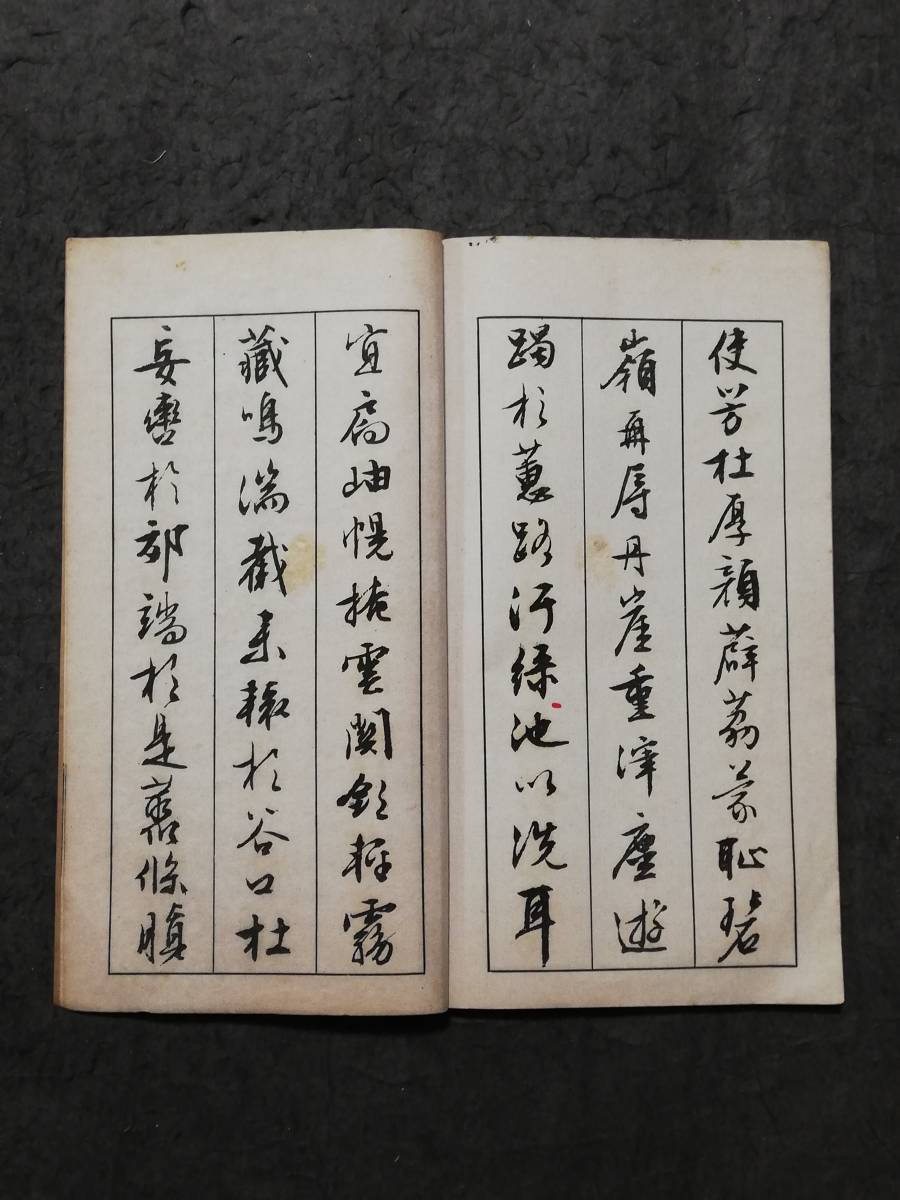 使芳杜厚顏薜荔蒙恥碧
嶺再辱丹崖重滓塵遊
躅於蕙路汙淥池以洗耳
宜扃岫幌掩雲關斂輕霧
藏鳴湍截來轅於谷口杜
妄轡於郊端於是叢條瞋